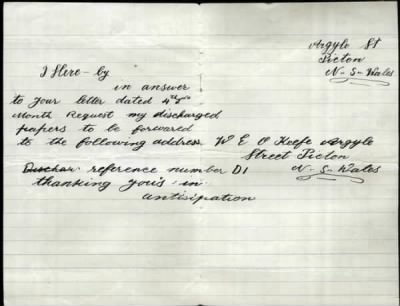 Argyle St
Picton
N-S-Wales
I Here-by
in answer
to your letter dated 4th
Month Request my discharged
papers to be forwared
to the following address W E O Keefe Argyle
Street Picton
reference number D1 N-S-Wales
thanking yours in
antisipation